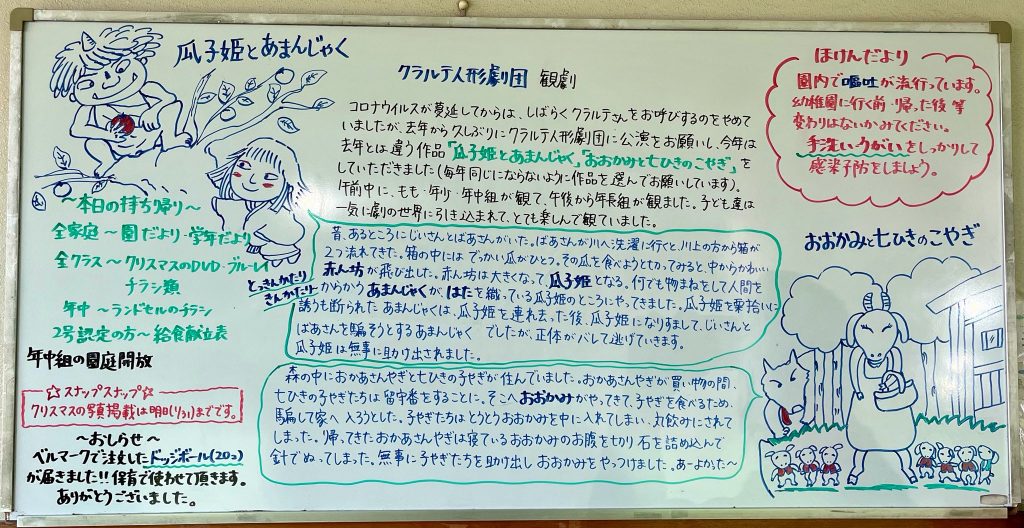 瓜子姫とあまんじゃく
クラルテ人形劇団 観劇
コロナウイルスが蔓延してからは、しばらくクラルテさんをお呼びするのをやめて
いましたが、去年から久しぶりにクラルテ人形劇団に公演をお願いし、今年は
去年とは違う作品「瓜子姫とあまんじゃく」「おおかみと七ひきのこやぎ」を
していただきました(毎年同じにならないように作品を選んでお願いしています)。
午前中に、もも・年少・年中組が観て、午後から年長組が観ました。子ども達は
一気に劇の世界に引き込まれて、とても楽しんで観ていました。
昔、あるところにじいさんとばあさんがいた。ばあさんが川へ洗濯に行くと、川上の方から箱が
2つ流れてきた。箱の中には でっかい瓜がひとつ。その瓜を食べようと切ってみると、中からかわいい
赤ん坊が飛び出した。赤ん坊は大きくなって、瓜子姫となる。何でも物まねをして人間を
からかうあまんじゃくが、はたを織っている瓜子姫のところにやってきました。瓜子姫を栗拾いに
誘うも断られた あまんじゃくは、瓜子姫を連れ去った後、瓜子姫になりすまして、じいさんと
ばあさんを騙そうとするあまんじゃく でしたが、正体がバレて逃げていきます。
瓜子姫は無事に助け出されました。
とっきんかたり
きんかたりー
森の中におかあさんやぎと七ひきの子やぎが 住んでいました。おかあさんやぎが 買い物の間、
七ひきの子やぎたちは 留守番をすることに。そこへおおかみがやってきて、子やぎを食べるため、
騙して家へ入ろうとした。子やぎたちはとうとうおおかみを中に入れてしまい、丸飲みにされて
しまった。帰ってきたおかあさんやぎは寝ているおおかみのお腹を切り 石を詰め込んで
針でぬってしまった。無事に子やぎたちを助け出し おおかみをやっつけました。あーよかった〜
〜本日の持ち帰り〜
全家庭〜園だより・学年だより
全クラス〜クリスマスのDVD・ブルーレイ
チラシ類
年中〜ランドセルのチラシ
2号認定の方〜給食献立表
年中組の園庭開放
☆スナップスナップ☆
クリスマスの写真掲載は明日(1/31)までです。
〜おしらせ〜
ベルマークで注文したドッジボール(20コ)
が届きました!!保育で使わせて頂きます。
ありがとうございました。
ほけんだより
園内で嘔吐が流行っています。
幼稚園に行く前・帰った後 等
変わりはないかみてください。
手洗いうがいをしっかりして
感染予防をしましょう。
おおかみと七ひきのこやぎ